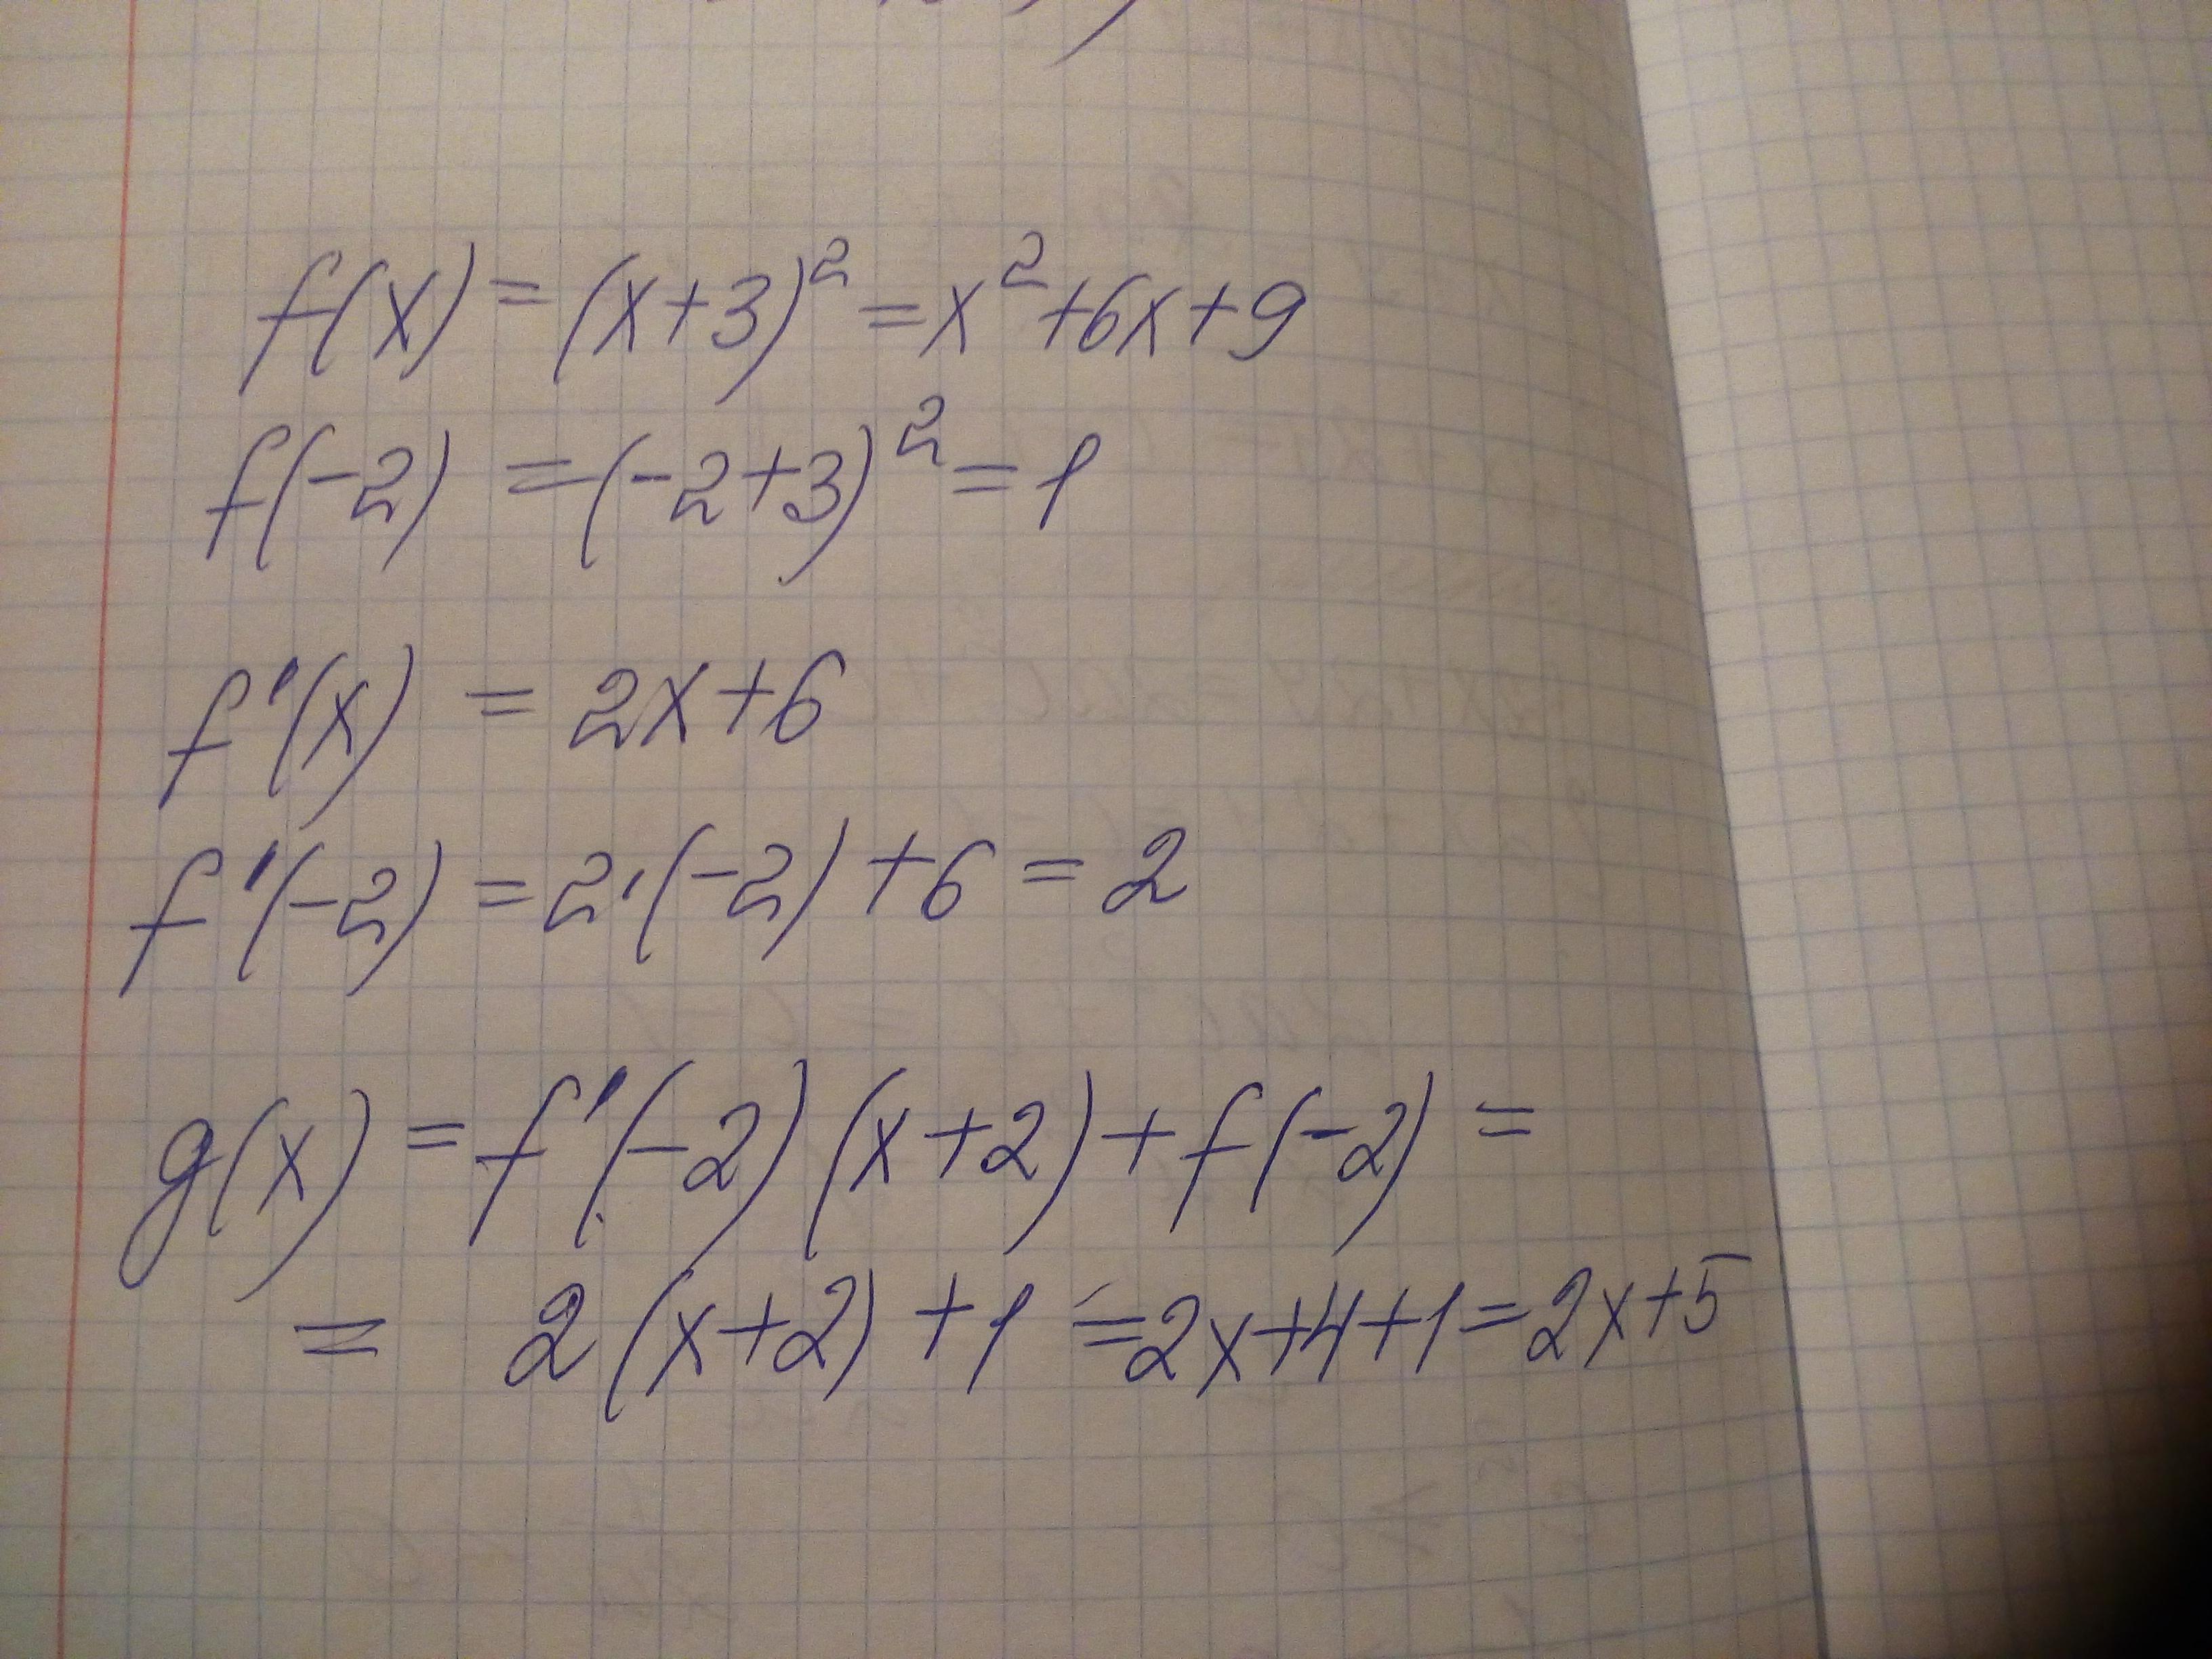 f(x) = (x+3)² = x² + 6x + 9
f(-2) = (-2+3)² = 1
f'(x) = 2x+6
f'(-2) = 2·(-2) + 6 = 2
g(x) = f'(-2)(x+2) + f(-2) =
= 2(x+2) + 1 = 2x+4+1 = 2x+5